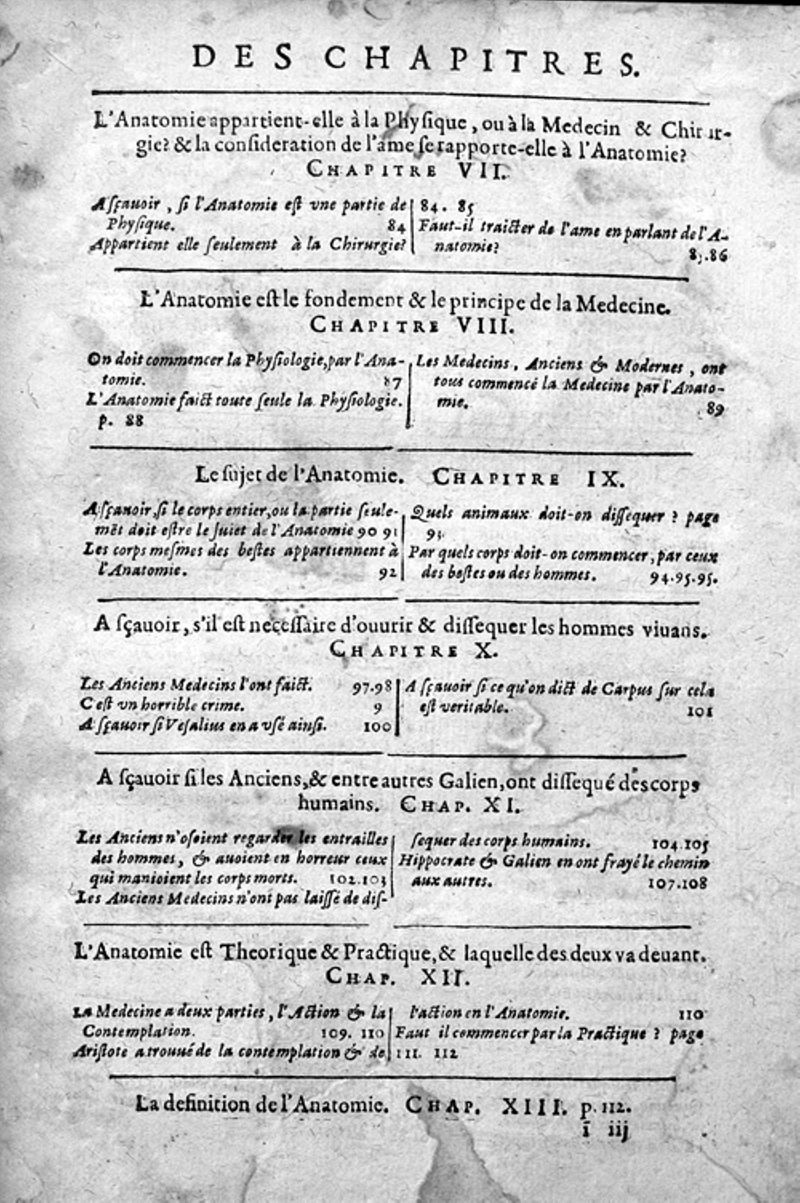 DES CHAPITRES.
L'Anatomie appartient-elle à la Physique, ou à la Medecin & Chirurgie? & la consideration de l'ame se rapporte-elle à l'Anatomie?
CHAPITRE VII.
Asçauoir, si l'Anatomie est vne partie de
Physique. 84
Appartient elle seulement à la Chirurgie?
84. 85
Faut-il traicter de l'ame en parlant de l'A-
natomie?
85.86
L'Anatomie est le fondement & le principe de la Medecine.
CHAPITRE VIII.
On doit commencer la Physiologie, par l'Ana-
tomie. 87
L'Anatomie faict toute seule la Physiologie.
p. 88
Les Medecins, Anciens & Modernes, ont
tous commencé la Medecine par l'Anato-
mie. 89
Le sujet de l'Anatomie. CHAPITRE IX.
Asçauoir, si le corps entier, ou la partie seule-
mēt doit estre le suiet de l'Anatomie 90 91
Les corps mesmes des bestes appartiennent à
l'Anatomie. 92
Quels animaux doit-on dissequer? page
93
Par quels corps doit-on commencer, par ceux
des bestes ou des hommes. 94.95.95.
A sçauoir, s'il est necessaire d'ouurir & dissequer les hommes viuans.
CHAPITRE X.
Les Anciens Medecins l'ont faict. 97.98
C'est vn horrible crime. 9
A sçauoir si Vesalius en a vsé ainsi. 100
A sçauoir si ce qu'on dict de Carpus sur cela
est veritable. 101
A sçauoir si les Anciens, & entre autres Galien, ont dissequé des corps
humains. CHAP. XI.
Les Anciens n'osoient regarder les entrailles
des hommes, & auoient en horreur ceux
qui manioient les corps morts. 102.103
Les Anciens Medecins n'ont pas laissé de dis-
sequer des corps humains. 104.105
Hippocrate & Galien en ont frayé le chemin
aux autres. 107.108
L'Anatomie est Theorique & Practique, & laquelle des deux va deuant.
CHAP. XII.
La Medecine a deux parties, l'Action & la
Contemplation. 109. 110
Aristote a trouué de la contemplation & de
l'action en l'Anatomie. 110
Faut il commencer par la Practique? page
111. 112
La definition de l'Anatomie. CHAP. XIII. p. 112.
ī iij